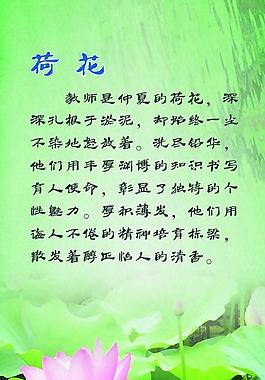 荷花
教师是仲夏的荷花，深
深扎根于淤泥，却始终一尘
不染地怒放着。洗尽铅华，
他们用丰厚渊博的知识书写
育人使命，彰显了独特的个
性魅力。厚积薄发，他们用
诲人不倦的精神培育栋梁，
散发着醇正怡人的清香。